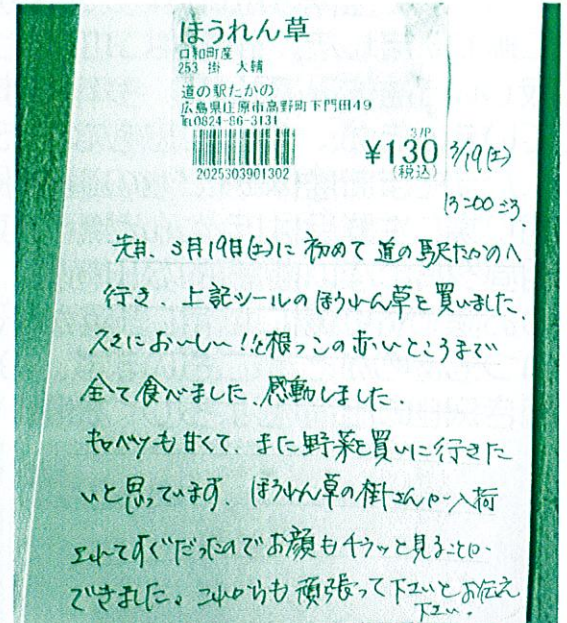 ほうれん草
口和町産
253 掛 大輔
道の駅たかの
広島県庄原市高野町下門田49
℡0824-86-3131
3/P
¥130
(税込)
2025303901302
3/19(土)
13:00ごろ
先日、3月19日(土)に初めて道の駅たかのへ
行き、上記シールのほうれん草を買いました。
久々においしー!!と根っこの赤いところまで
全て食べました。感動しました。
キャベツも甘くて、また野菜を買いに行きた
いと思っています。ほうれん草の掛さんが入荷
されてすぐだったのでお顔もチラッと見ることが
できました。これからも頑張って下さいとお伝え
下さい。